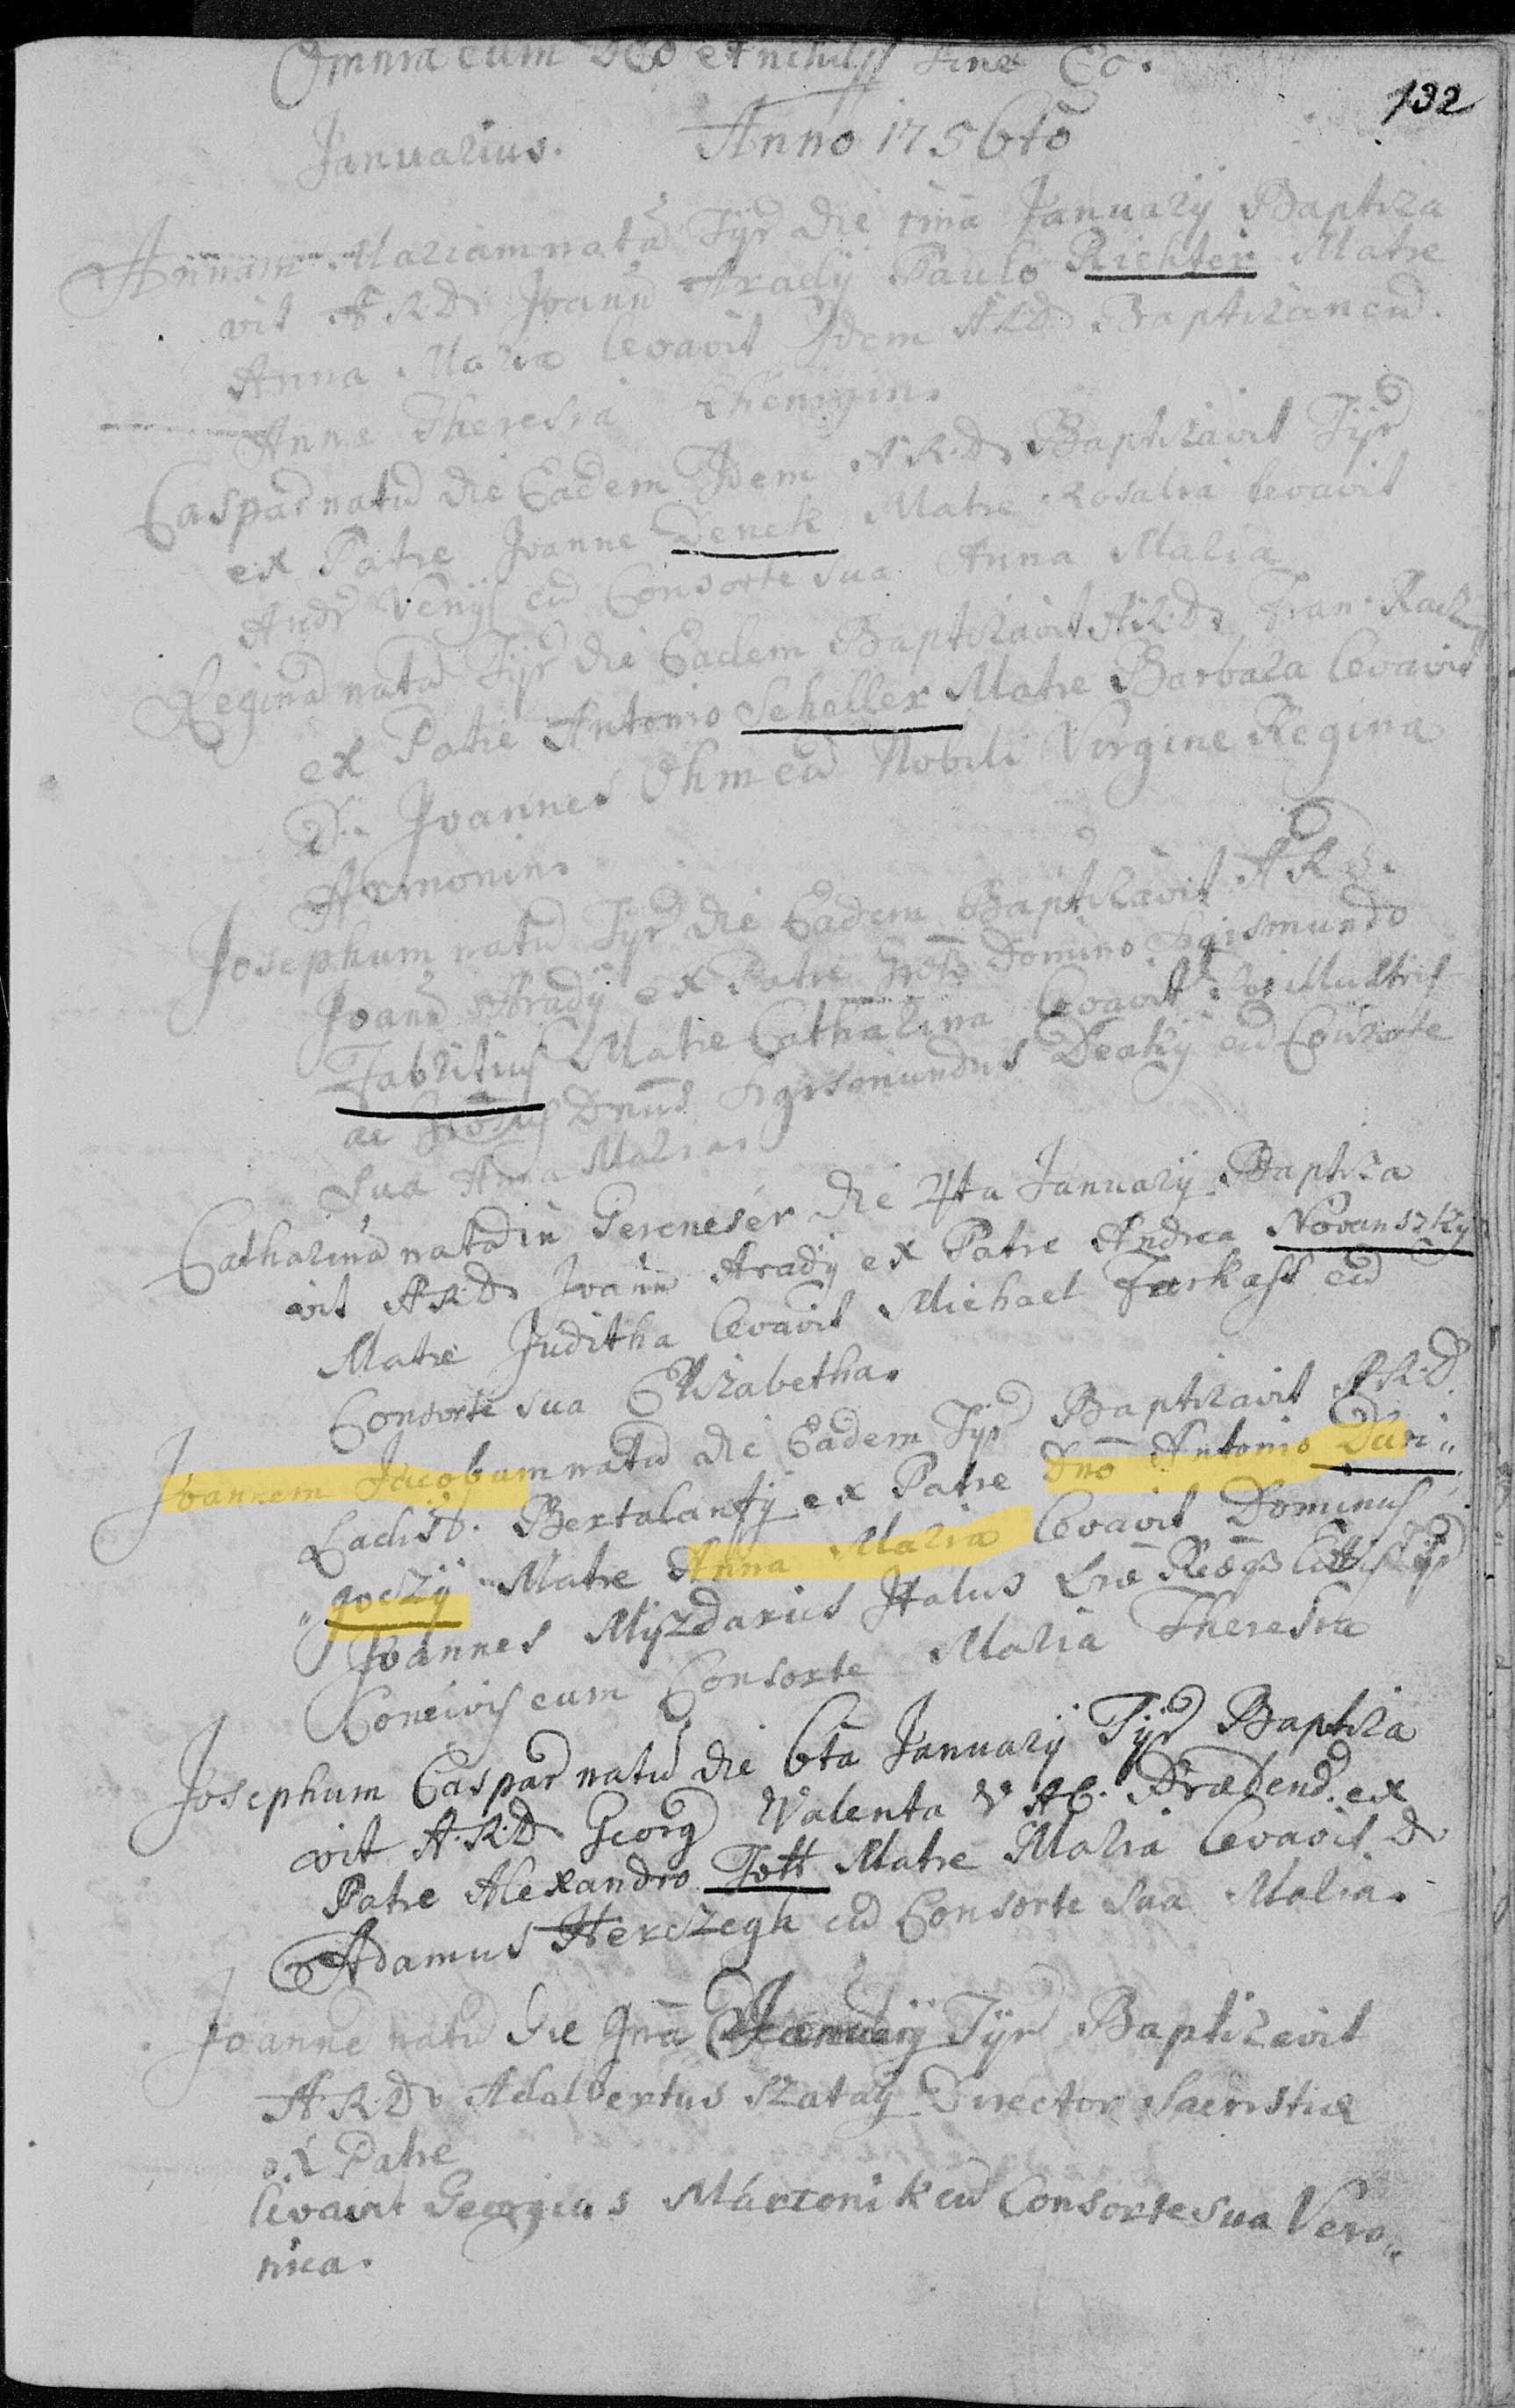 Omnia cum Deo et nihil sine Eo.
132
Januarius. Anno 1756to
Annam Mariam nata Tyr die 1ma Januarÿ Baptiza
vit A.R.D. Joann Aradÿ Paulo Richter Matre
Anna Maria levavit Idem A.R.D. Baptizan cu
Anna Theresia
Caspar natu die Eadem Idem A.R.D. Baptizavit Tÿr
ex Patre Joanne Denek Matre Rosalia levavit
Andr Venÿs cu Consorte sua Anna Maria
Regina nata Tÿr die Eadem Baptizavit A.R.D. Fran.
ex Patre Antonio Schaller Matre Barbara levavit
D. Joannes Ohm cu Nobili Virgine Regina
Armonin.
Josephum natu Tÿr die Eadem Baptizavit A.R.D.
Joann Aradÿ ex Patre Domino Sigismundo
Fabritius Matre Catharina levavit
ac Dnus Sigismundus Deaky cu Consorte
sua Anna Maria.
Catharina nata in Gerencsér die 4ta Januarÿ Baptiza
vit A.R.D. Joann Aradÿ ex Patre Andrea Novanszkÿ
Matre Juditha levavit Michael Farkass cu
Consorte sua Elizabetha.
Joannem Jacobum natu die Eadem Tÿr Baptizavit A.R.D.
Ladisl. Bertalanfÿ ex Patre Dno Antonio Dari„
„goczÿ Matre Anna Maria levavit Dominus
Joannes Myzdarius Italus
Concivis cum Consorte Maria Theresia
Josephum Caspar natu die 6ta Januarÿ Tÿr Baptiza
vit A.R.D. Georg Valenta V. AC. Præbend. ex
Patre Alexandro Tott Matre Maria levavit D.
Adamus Herczegh cu Consorte sua Maria.
Joanne natu die Januarÿ Tÿr Baptizavit
A.R.D. Adalbertus Szatay Director Sacristiæ
ex Patre
levavit Georgius Martonik cu Consorte sua Vero„
nica.